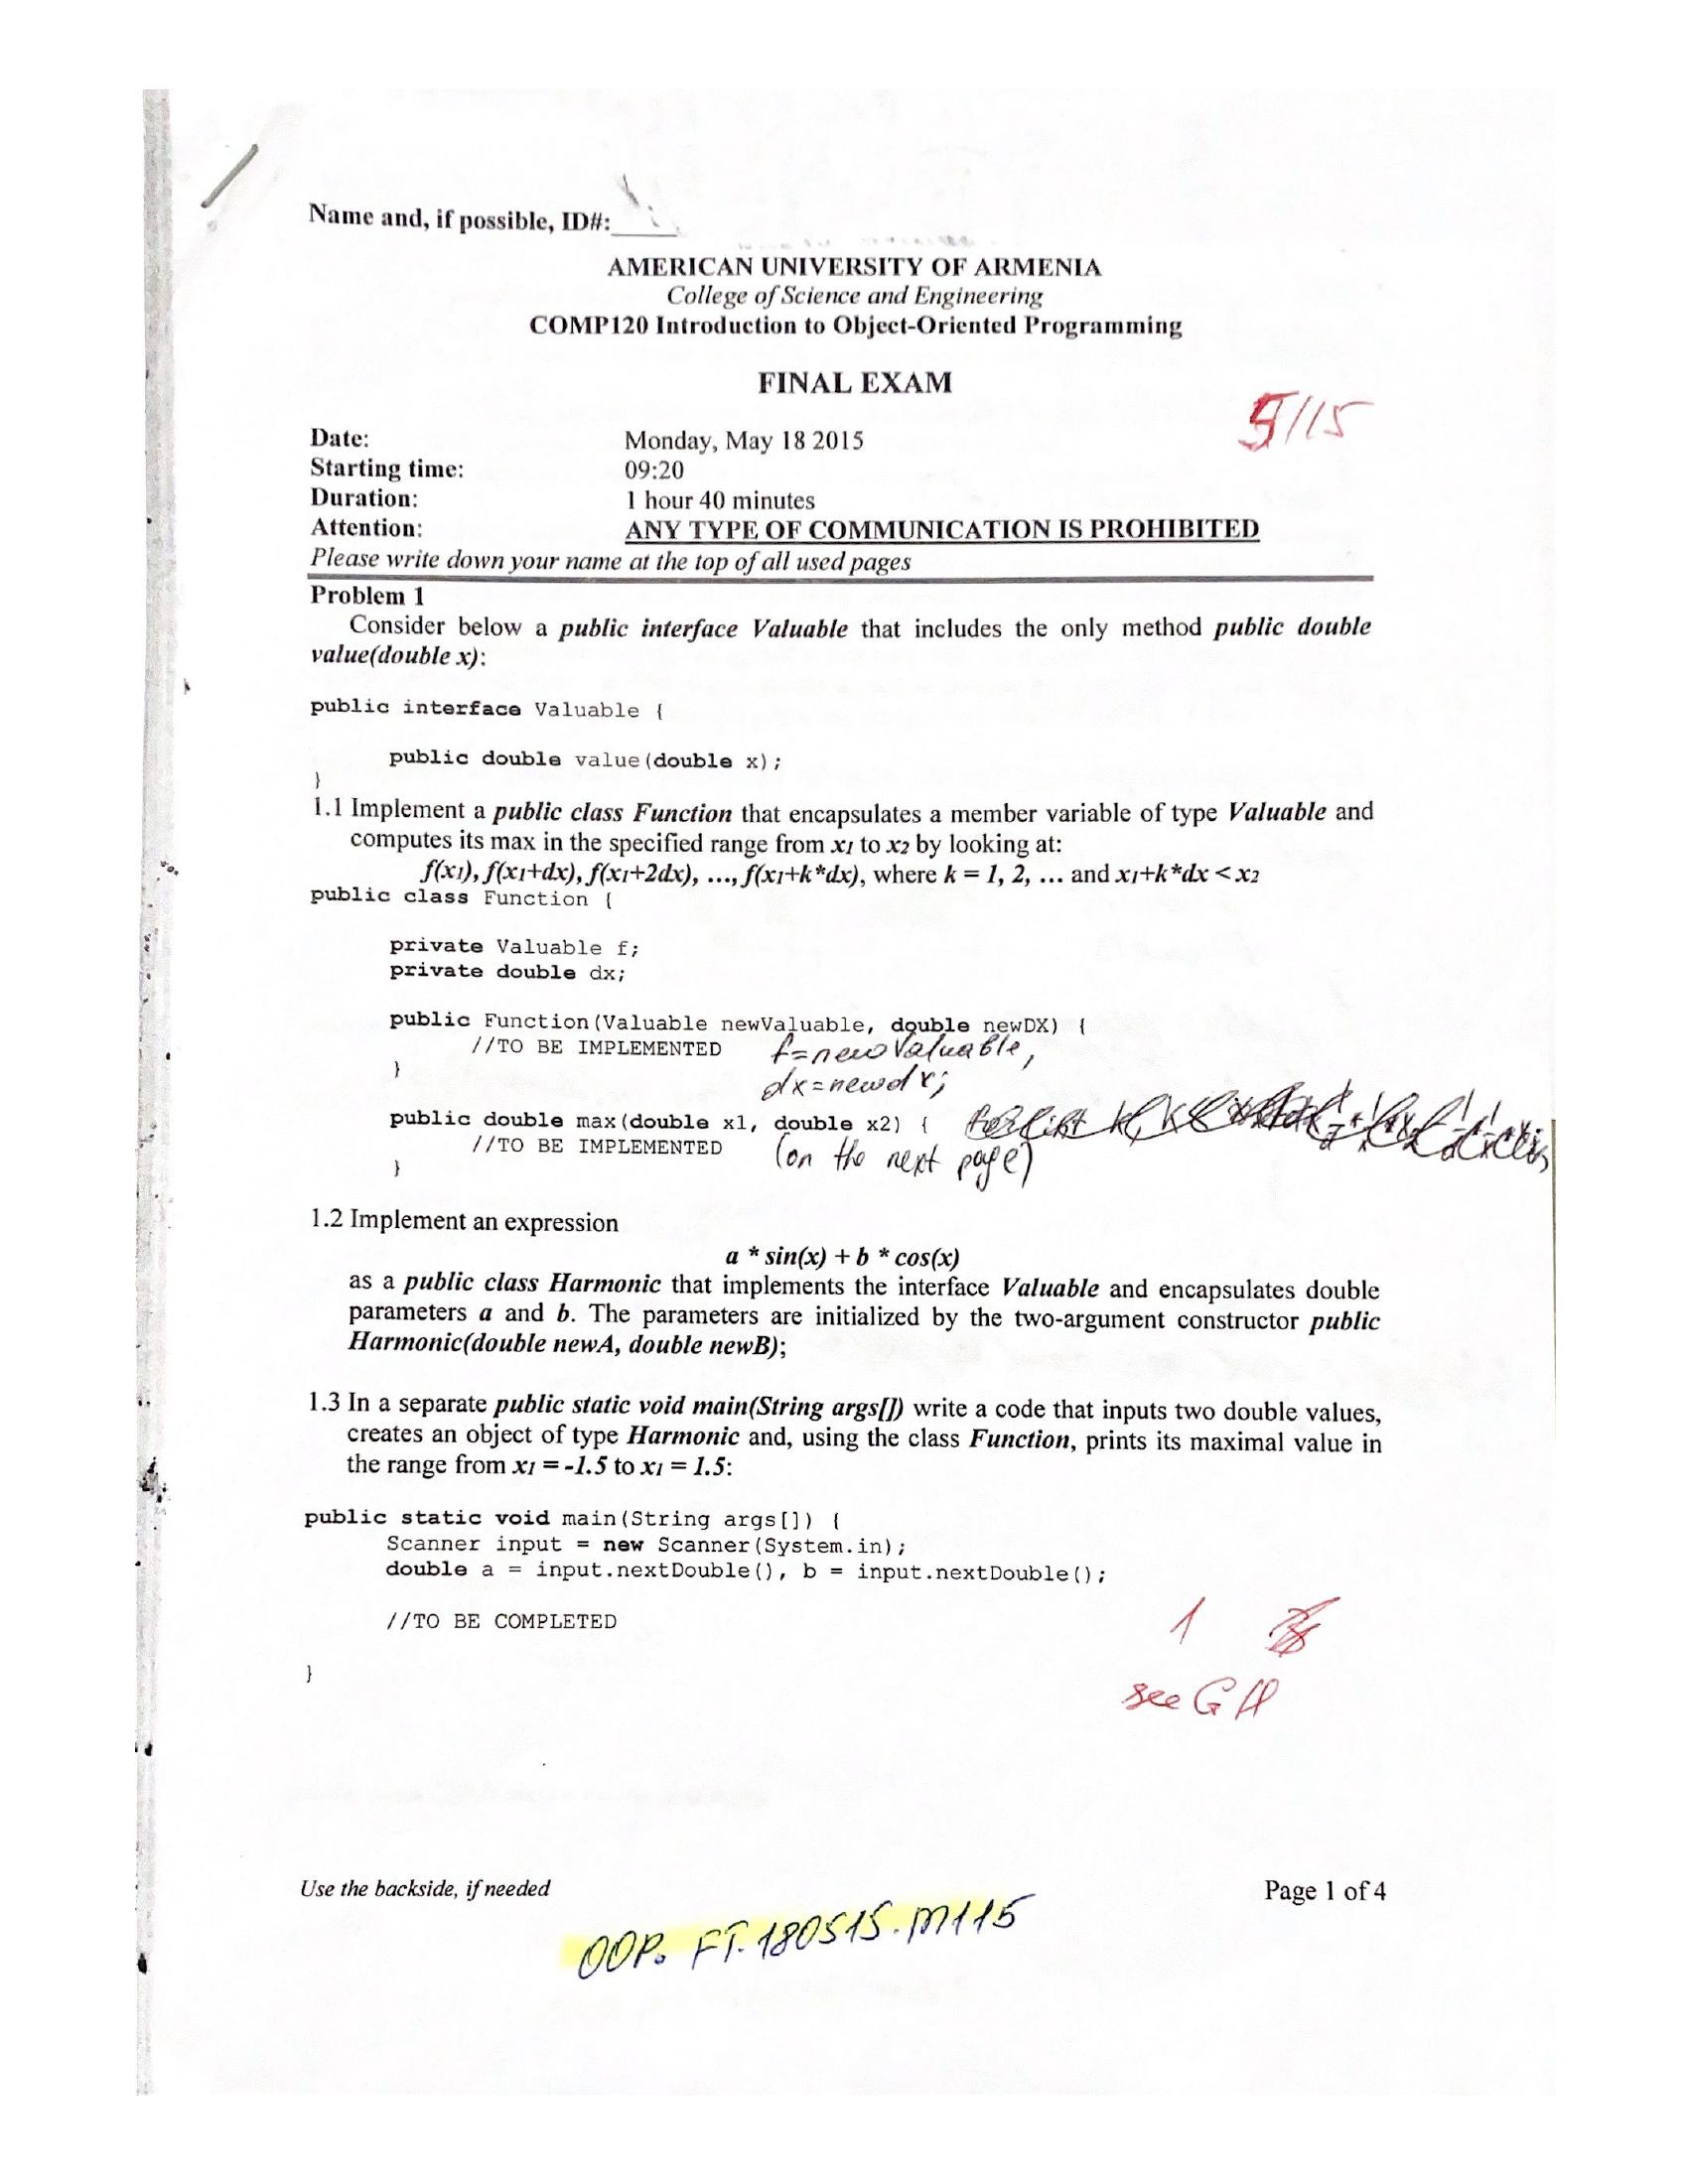 Name and, if possible, ID#:
AMERICAN UNIVERSITY OF ARMENIA
College of Science and Engineering
COMP120 Introduction to Object-Oriented Programming
FINAL EXAM
5/15
Date: Monday, May 18 2015
Starting time: 09:20
Duration: 1 hour 40 minutes
Attention: ANY TYPE OF COMMUNICATION IS PROHIBITED
Please write down your name at the top of all used pages
Problem 1
Consider below a public interface Valuable that includes the only method public double
value(double x):
public interface Valuable {
public double value(double x);
}
1.1 Implement a public class Function that encapsulates a member variable of type Valuable and
computes its max in the specified range from x1 to x2 by looking at:
f(x1), f(x1+dx), f(x1+2dx), ..., f(x1+k*dx), where k = 1, 2, ... and x1+k*dx < x2
public class Function {
private Valuable f;
private double dx;
public Function(Valuable newValuable, double newDX) {
//TO BE IMPLEMENTED f=newValuable,
}
dx=newdx;
public double max(double x1, double x2) {
//TO BE IMPLEMENTED (on the next page)
}
1.2 Implement an expression
a * sin(x) + b * cos(x)
as a public class Harmonic that implements the interface Valuable and encapsulates double
parameters a and b. The parameters are initialized by the two-argument constructor public
Harmonic(double newA, double newB);
1.3 In a separate public static void main(String args[]) write a code that inputs two double values,
creates an object of type Harmonic and, using the class Function, prints its maximal value in
the range from x1 = -1.5 to x1 = 1.5:
public static void main(String args[]) {
Scanner input = new Scanner(System.in);
double a = input.nextDouble(), b = input.nextDouble();
//TO BE COMPLETED
1
}
see GH
Use the backside, if needed Page 1 of 4
OOP. FT. 180515. M115